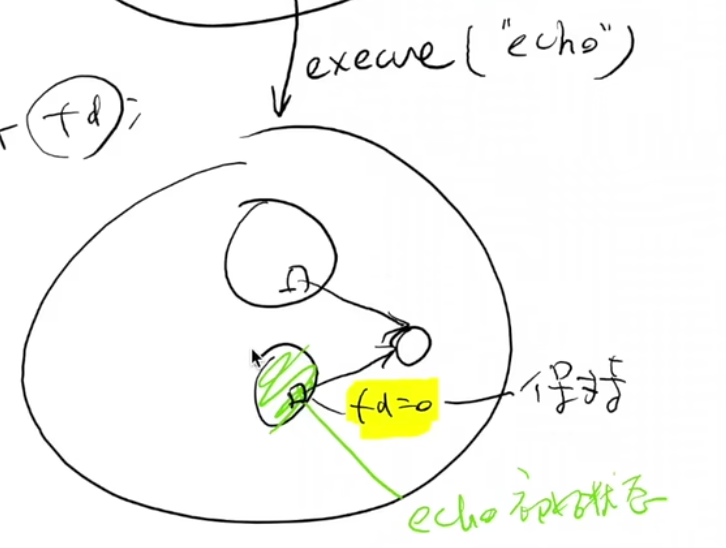 execve ("echo")
fd;
fd=0
保持
echo 初始状态